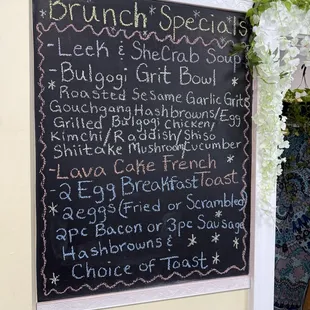 Brunch Specials
-Leek & SheCrab Soup
-Bulgogi Grit Bowl
Roasted Sesame Garlic Grits
Gouchgang Hashbrowns/Egg
Grilled Bulgogi Chicken/
Kimchi/Raddish/Shiso
Shiitake Mushroom/Cucumber
-Lava Cake French
Toast
-2 Egg Breakfast
2eggs (Fried or Scrambled)
2pc Bacon or 3pc Sausage
Hashbrowns &
Choice of Toast